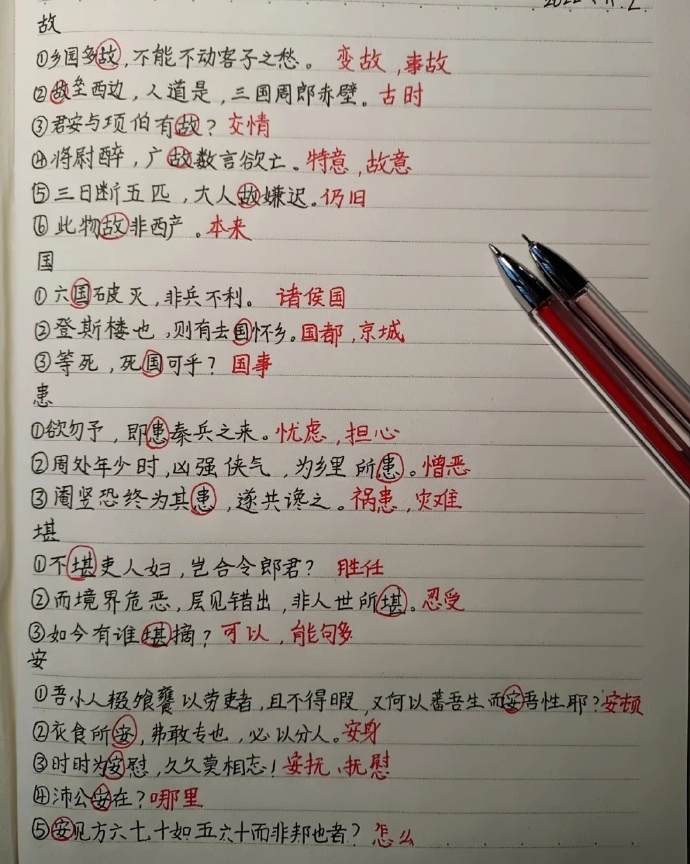 故
①乡国多故，不能不动客子之愁。 变故，事故
②故垒西边，人道是，三国周郎赤壁。古时
③君安与项伯有故？交情
④将尉醉，广故数言欲亡。特意，故意
⑤三日断五匹，大人故嫌迟。仍旧
⑥此物故非西产。本来
国
①六国破灭，非兵不利。 诸侯国
②登斯楼也，则有去国怀乡。国都，京城
③等死，死国可乎？ 国事
患
①欲勿予，即患秦兵之来。忧虑，担心
②周处年少时，凶强侠气，为乡里所患。憎恶
③阉竖恐终为其患，遂共谗之。祸患，灾难
堪
①不堪吏人妇，岂合令郎君？ 胜任
②而境界危恶，层见错出，非人世所堪。忍受
③如今有谁堪摘？可以，能够
安
①吾小人辍飧饔以劳吏者，且不得暇，又何以蕃吾生而安吾性耶？安顿
②衣食所安，弗敢专也，必以分人。安身
③时时为安慰，久久莫相忘！安抚、抚慰
④沛公安在？哪里
⑤安见方六七十如五六十而非邦也者？怎么